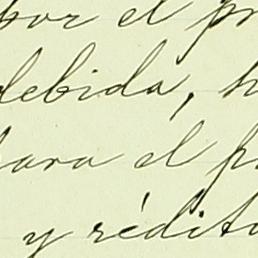 por el pr
debida, h
para el p
y rédito